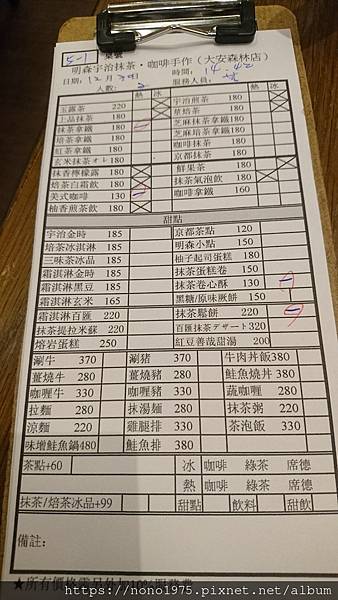 5-1 桌號
明森宇治抹茶・咖啡手作（大安森林店）
日期： 時間：14:42
人數： 服務人員：
熱 冰 熱 冰
玉露茶 220 宇治煎茶 180
上品抹茶 180 草焙茶 180
抹茶拿鐵 180 芝麻抹茶拿鐵180
培茶拿鐵 180 芝麻培茶拿鐵180
紅茶拿鐵 180 咖啡抹茶 180
玄米抹茶オレ180 京都抹茶 180
抹香檸檬露 180 鮮果茶 180
焙茶白霜飲 180 抹茶氣泡飲 180
美式咖啡 130 咖啡拿鐵 160
柚香煎茶飲 180
甜點
宇治金時 185 京都茶點 120
培茶冰淇淋 185 明森小點 150
三味茶冰品 185 柚子起司蛋糕 180
霜淇淋金時 185 抹茶蛋糕卷 150
霜淇淋黑豆 185 抹茶卷心酥 130
霜淇淋玄米 165 黑糖/原味厥餅 150
霜淇淋百匯 220 抹茶鬆餅 220
抹茶提拉米蘇 220 百匯抹茶デザート320
熔岩蛋糕 250 紅豆善哉甜湯 200
涮牛 370 涮豬 370 牛肉丼飯380
薑燒牛 280 薑燒豬 280 鮭魚燒丼380
咖喱牛 330 咖喱豬 330 蔬咖喱 280
拉麵 280 抹湯麵 280 抹茶粥 220
涼麵 220 雞腿排 330 茶泡飯 330
味增鮭魚鍋480 鮭魚排 380
茶點+60 冰 咖啡 綠茶 席德
熱 咖啡 綠茶 席德
抹茶/焙茶冰品+99 甜點 飲料 甜飲
備註：
★所有價格需另外加10%服務費
https://nono1975.pixnet.net/album